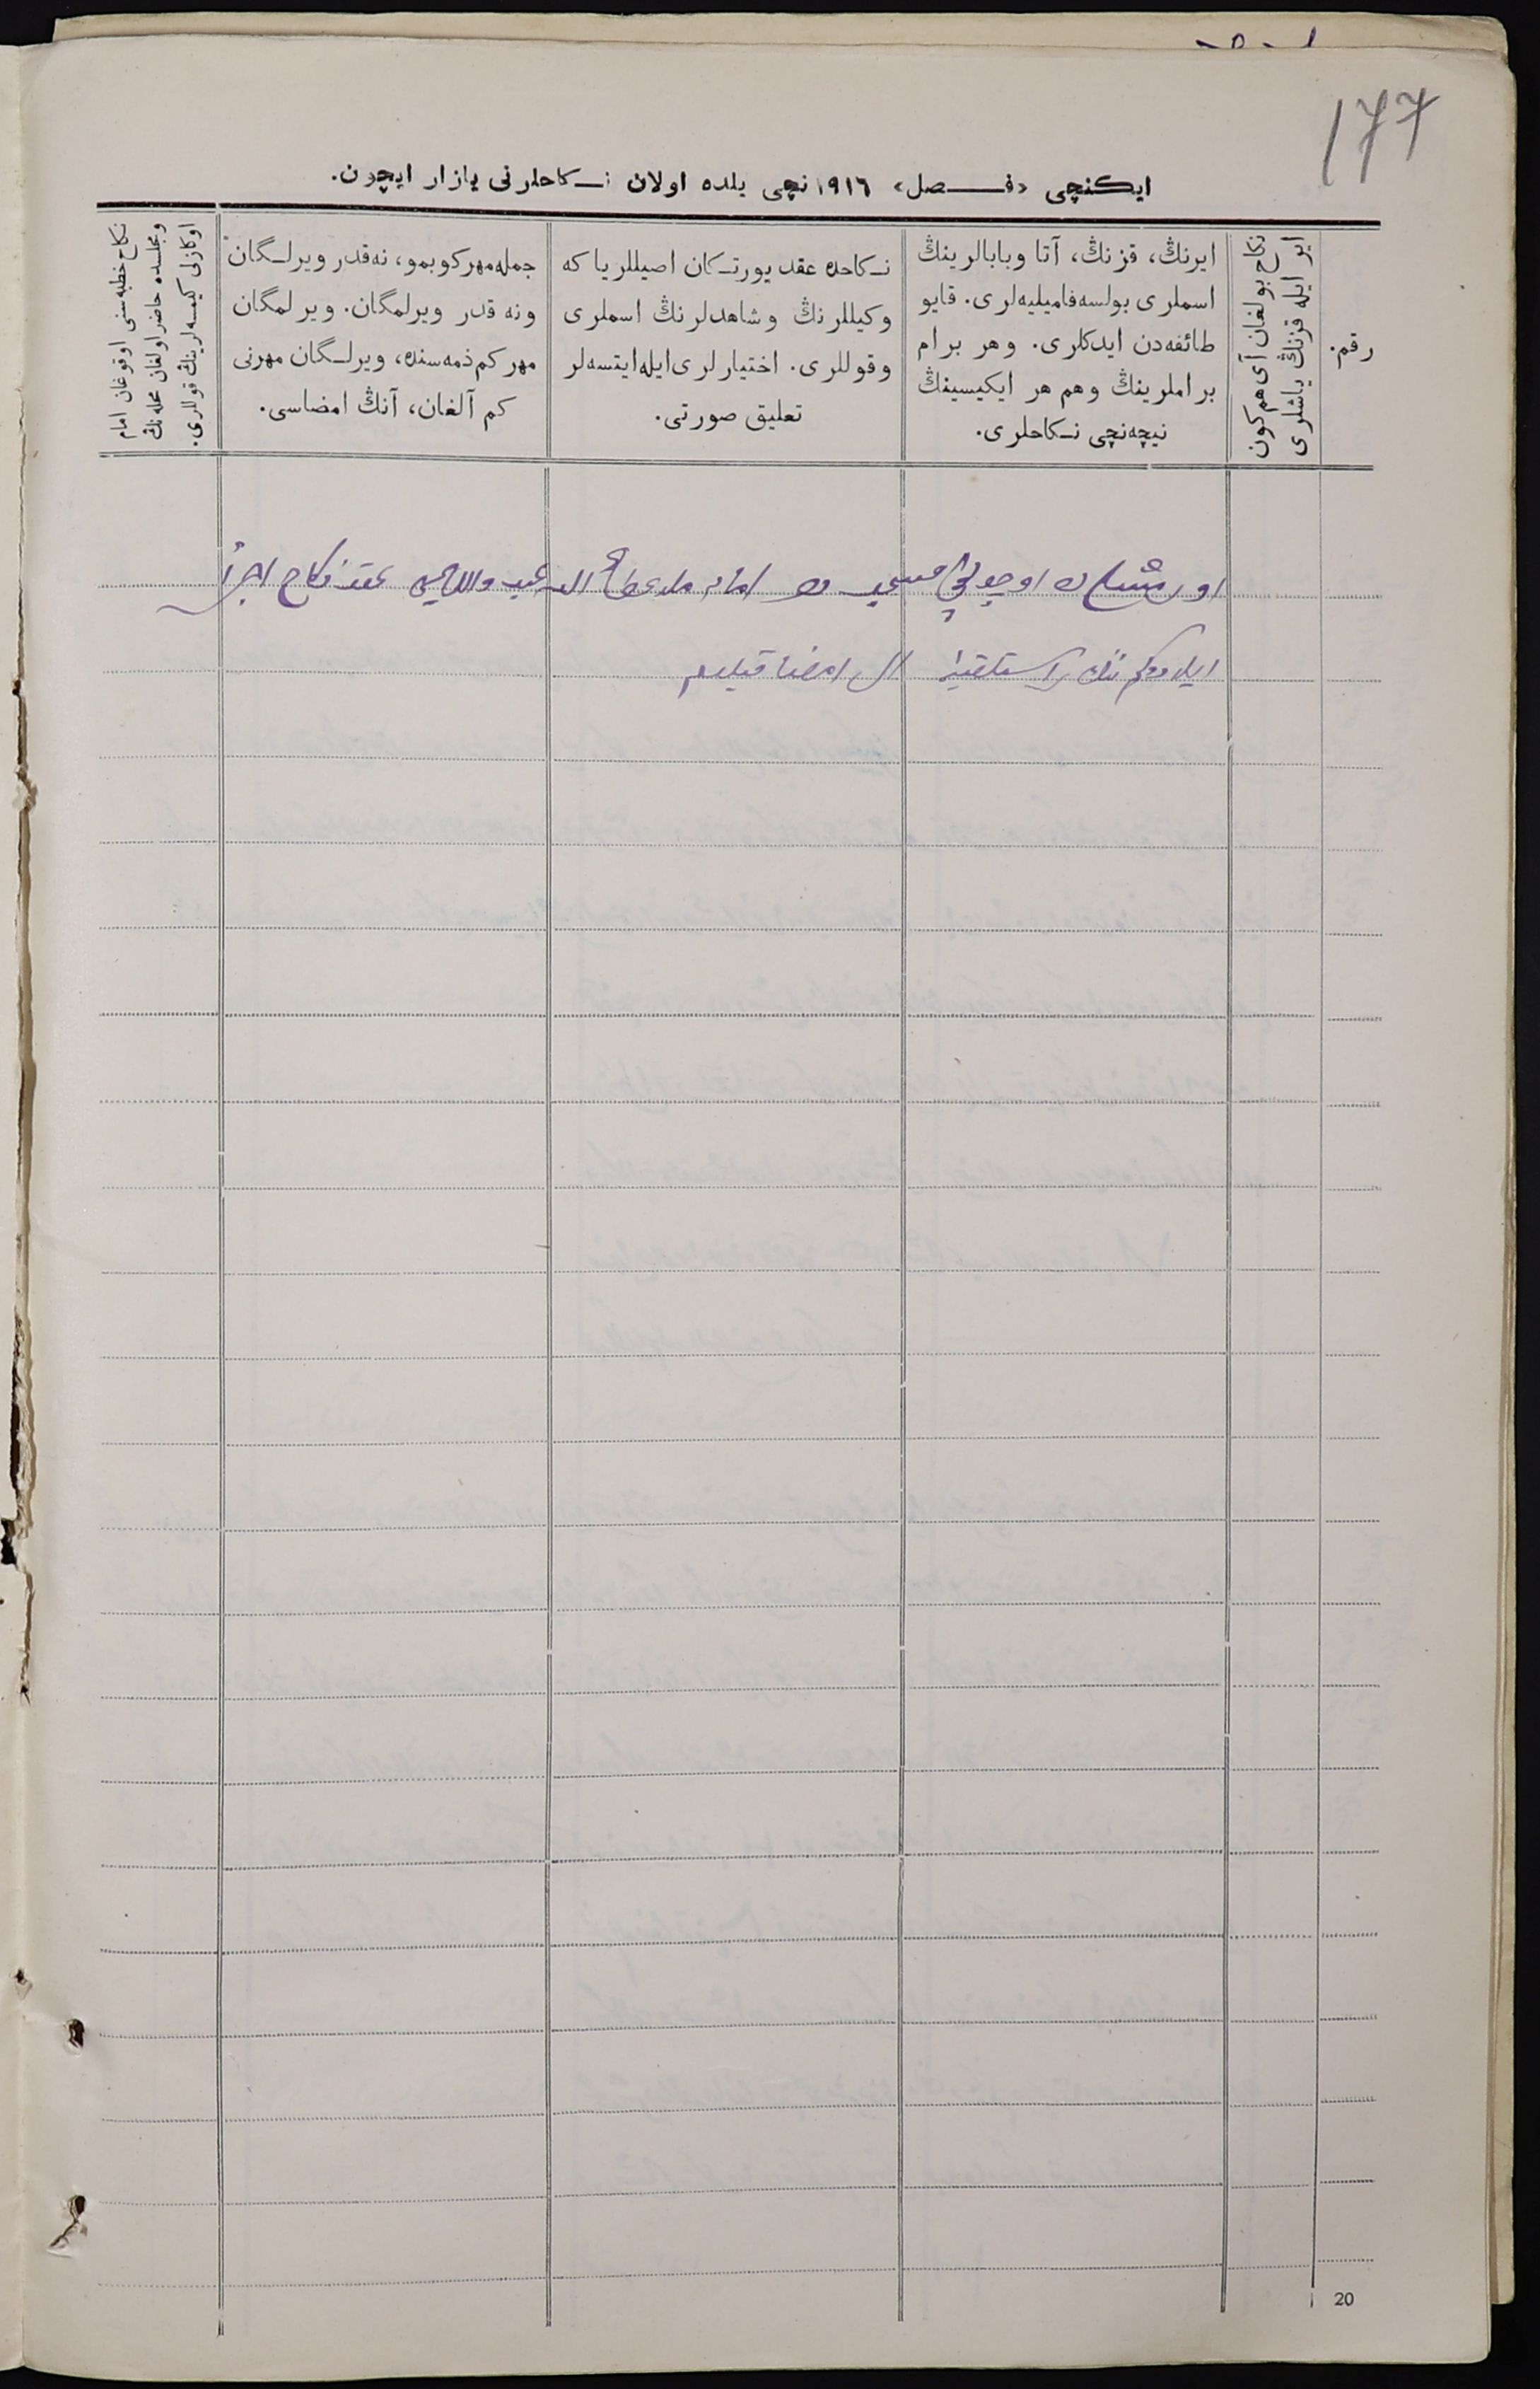 177
ایکنچی «فصل» ١٩١٦ نچی یلده اولان نکاحلرنی یازار ایچون.
رقم.
نکاح بولغان آی هم کون
ایر ایله قزنڭ یاشلری
ایرنڭ، قزنڭ، آتا وبابالرینڭ
اسملری بولسه فامیلیه‌لری. قایو
طائفه‌دن ایدکلری. وهر برام
براملرینڭ وهم هر ایکیسینڭ
نیچه‌نچی نکاحلری.
نکاحده عقد یورتکان اصیللر یا که
وکیللرنڭ وشاهدلرنڭ اسملری
وقوللری. اختیارلری ایله ایتسه‌لر
تعلیق صورتی.
جمله مهر کوبمو، نه‌قدر ویرلگان
ونه قدر ویرلمگان. ویرلمگان
مهر کم ذمه‌سنده، ویرلگان مهرنی
کم آلغان، آنڭ امضاسی.
نکاح خطبه‌سنی اوقوغان امام
ومجلسده حاضر اولغان محله‌نڭ
اوکازلی کیمسه‌لرینڭ قوللری.
اوچونچی امام عقد نکاح اجرا
امضا قیلدم
20